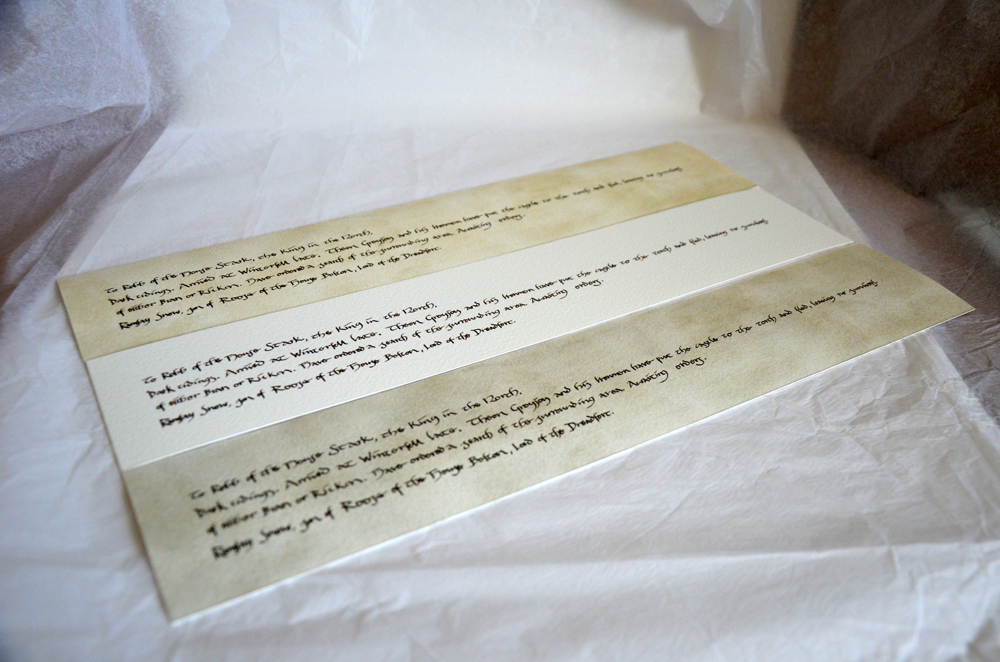 To Robb of the House Stark, the King in the North,
Dark tidings. Arrived at Winterfell late. Theon Greyjoy and his Ironmen have put the castle to the torch and fled, leaving no
of either Bran or Rickon. Have ordered a search of the surrounding area. Awaiting orders.
Ramsay Snow, son of Roose of the House Bolton, Lord of the Dreadfort.
To Robb of the House Stark, the King in the North,
Dark tidings. Arrived at Winterfell late. Theon Greyjoy and his Ironmen have put the castle to the torch and fled, leaving no
of either Bran or Rickon. Have ordered a search of the surrounding area. Awaiting orders.
Ramsay Snow, son of Roose of the House Bolton, Lord of the Dreadfort.
To Robb of the House Stark, the King in the North,
Dark tidings. Arrived at Winterfell late. Theon Greyjoy and his Ironmen have put the castle to the torch and fled, leaving no
of either Bran or Rickon. Have ordered a search of the surrounding area. Awaiting orders.
Ramsay Snow, son of Roose of the House Bolton, Lord of the Dreadfort.